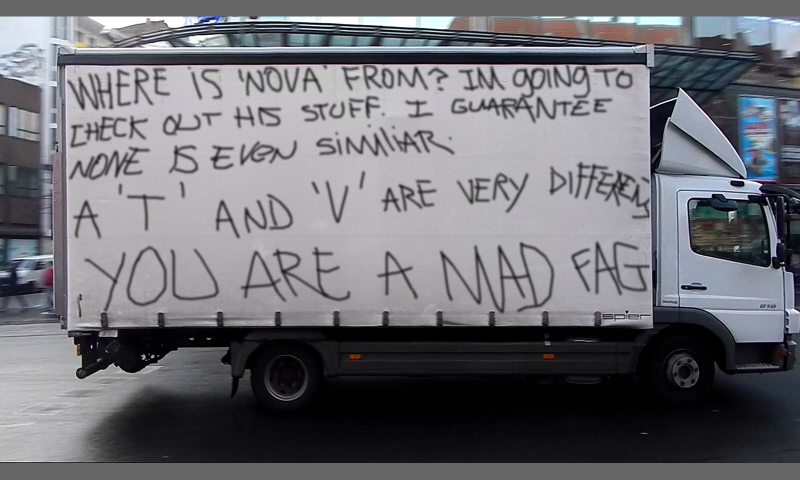 WHERE IS 'NOVA' FROM? IM GOING TO
CHECK OUT HIS STUFF. I GUARANTEE
NONE IS EVEN SIMILIAR.
A 'T' AND 'V' ARE VERY DIFFERENT
YOU ARE A MAD FAG
spier
818